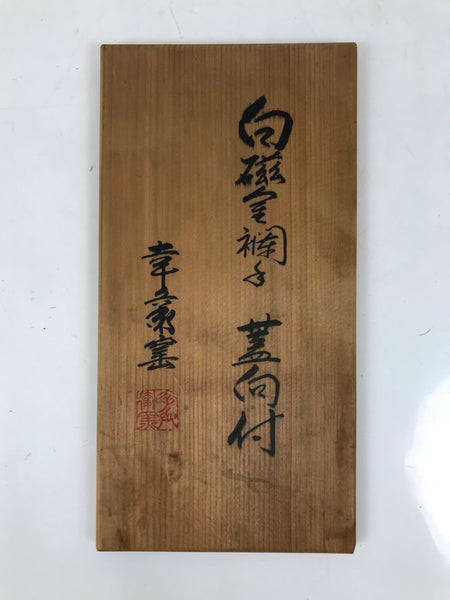 白磁金襴手 蓋向付
幸兵衛窯